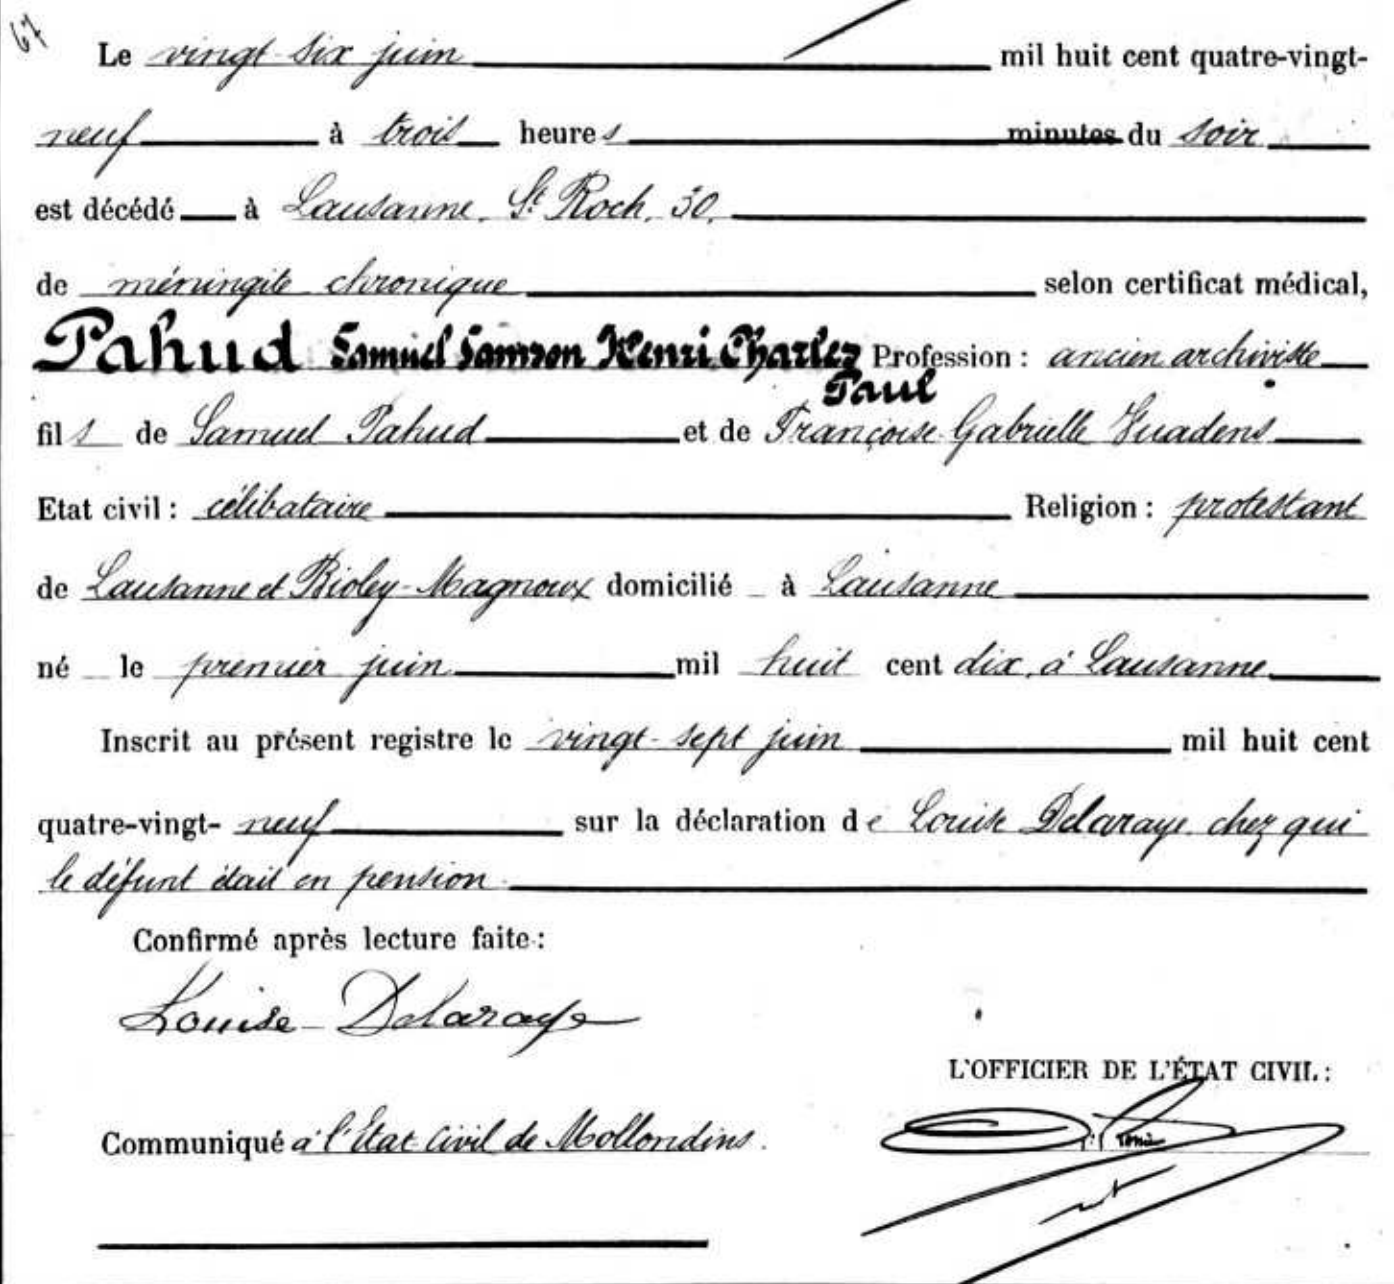 67
Le vingt-six juin mil huit cent quatre-vingt-
neuf à trois heures minutes du soir
est décédé à Lausanne, St Roch, 30,
de méningite chronique selon certificat médical,
Pahud Samuel Samson Henri Charles Profession : ancien archiviste
Paul
fils de Samuel Pahud et de Françoise Gabrielle
Etat civil : célibataire Religion : protestant
de Lausanne et Bioley-Magnoux domicilié à Lausanne
né le premier juin mil huit cent dix, à Lausanne
Inscrit au présent registre le vingt-sept juin mil huit cent
quatre-vingt- neuf sur la déclaration de Louise Delaraye chez qui
le défunt était en pension
Confirmé après lecture faite :
Louise Delaraye
L'OFFICIER DE L'ÉTAT CIVIL :
Communiqué à l'Etat Civil de Mollondins.